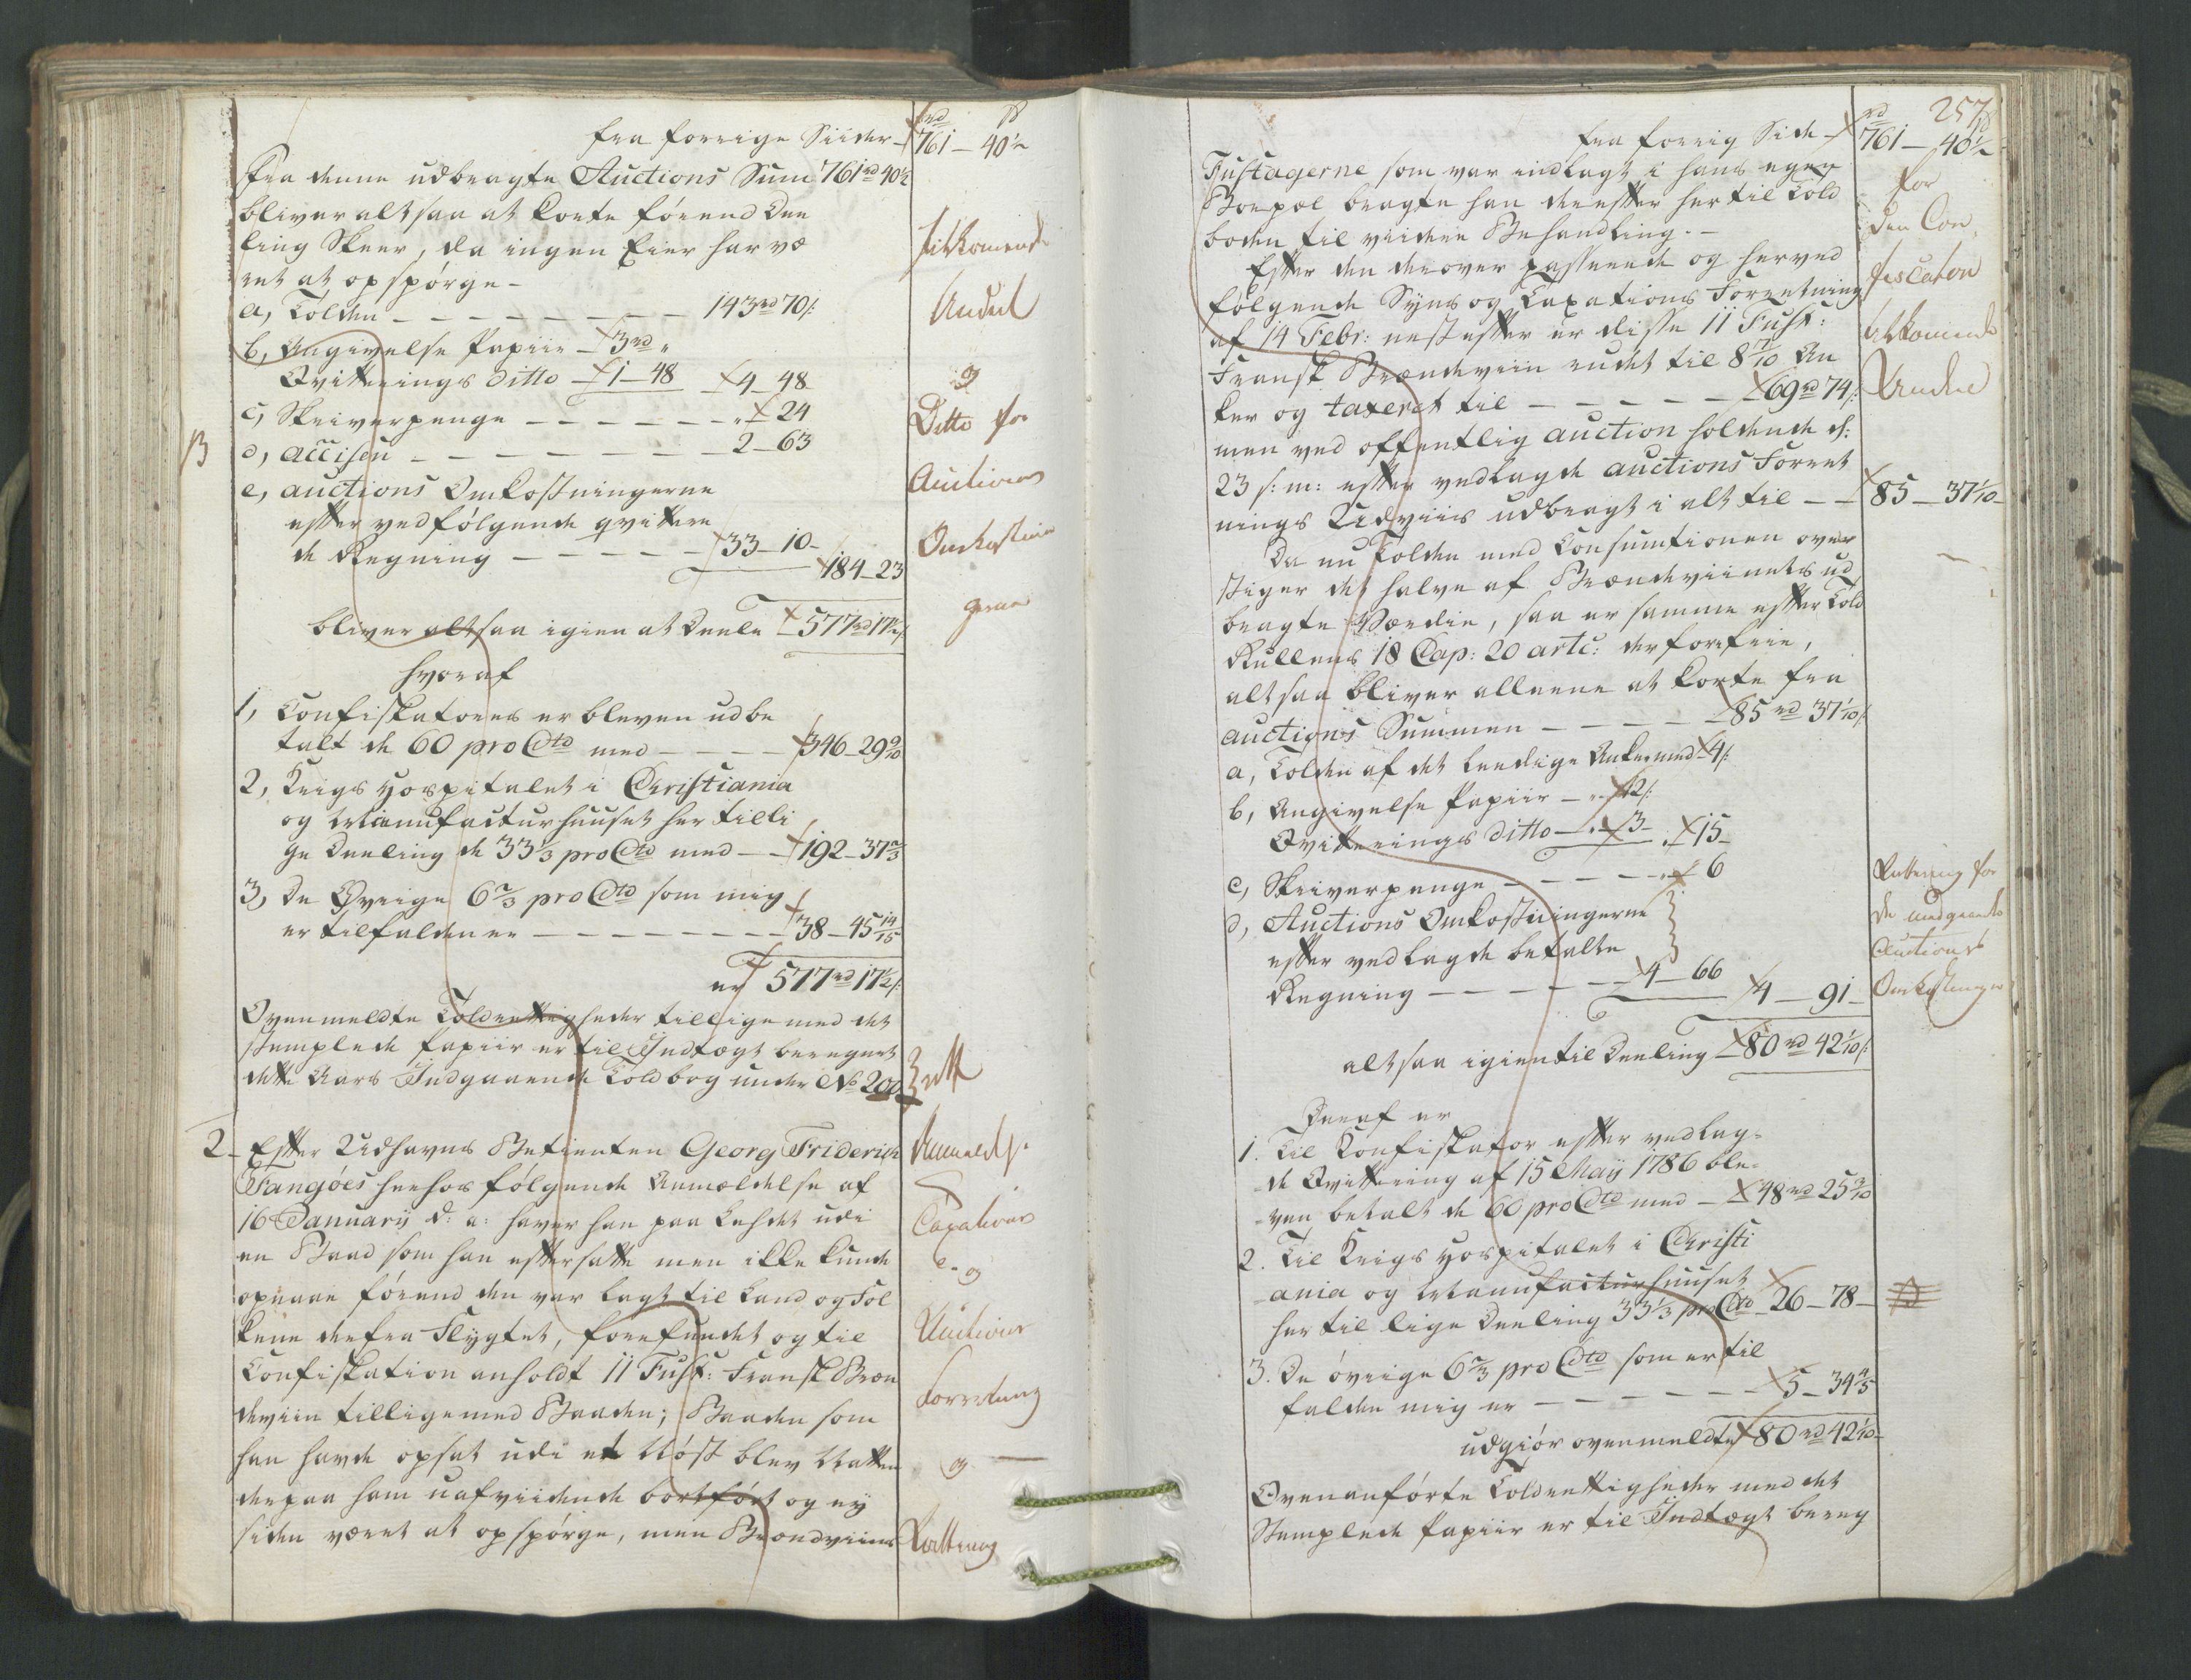 rd ß
fra forrige Siider 761 - 40½
Fra denne udbragte Auctions Sum 761rd 40½
bliver altsaa at korte förend Dee
ling Skeer, da ingen Eier har væ
ret at opspörge -
a, Tolden - - - 143rd 70/:
b, Angivelse Papiir - 3rd "
Qvitterings ditto - 1-48 4-48
c, Skriverpenge - - - " 24
d, accisen - - - 2-63
e, auctions Omkostningerne
efter vedfölgende qvittere
de Regning - - - 33-10-
184-23
bliver altsaa igien at Deele 577rd 17½/:
hvoraf
1, Confiskatores er bleven udbe
talt de 60 pro Cto med - - - 346-29 9/10
2, Krigs Hospitalet i Christiania
og Manufacturhuuset her til li
ge Deeling de 33⅓ pro Cto med - 192-37⅔
3, De Øvrige 6⅔ pro Cto som mig
er tilfalden er - - - 38-45 14/15
er 577rd 17½/:
Ovenmeldte Toldrettigheder tillige med det
stemplede papiir er til Indtægt beregnet
dette Aars Indgaaende Toldbog under No 200
2 - Efter Udhavns Betienten Georg Friderich
Fangöes hrehos fölgende Anmældelse af
16 Januarij d: a: haver han paa Lehdet udi
en Baad som han eftersatte men ikke kunde
opnaae förend den var lagt til Land og Fol
kene derfra Flygtet, forefundet og til
Confiskation anholdt 11 Fust: Fransk Bræn
deviin tilligemed Baaden; Baaden som
han havde opsat udi et Nöst blev Natten
derpaa ham uafviidende bortfört og ey
siden været at opspörge, men Brændviins
B
tilkomende
Andeel
og
Ditto for
Auctions
Omkostnin
gerne
rett
Anmeldes
Taxations
og
Auctions
Forretning
og
Qvittering
257
rd ß
fra forrig Side - 761 - 40½
Fustagerne som var indlagt i hans egen
Boepæl bragte han derefter her til Told
boden til viidere Behandling. -
Efter den derover passerede og herved
fölgende Syns og Taxations Forretning
af 14 Febr: nestefter er disse 11 Fust:
Fransk Brændeviin rudet til 8 7/10 An
ker og taxeret til - - - 69rd 74/:
men ved offentlig auction holdende d:
23 s: m: efter vedlagde auctions Forret
nings Udviis udbragt i alt til - - 85 - 37 1/10 -
Da nu Tolden med Consumtionen over
stiger det halve af Brændeviinets ud
bragte Værdie, saa er samme efter Told
Rullens 18 Cap: 20 artc: derfor frie,
altsaa bliver alleene at korte fra
auctions Summen - - - 85rd 37 1/10/:
a, Tolden af det leedige Anker med 4/:
b, Angivelse Papiir - " 12/:
Qvitterings ditto - " 3 - " 15 -
c, Skriverpenge - - - " 6
d, Auctions Omkostningerne
efter vedlagde betalte
Regning - - - 4-66
4 - 91 -
altsaa igien til Deeling 80rd 42 1/10/:
Deraf er
1. Til Confiskator efter vedlag-
de Qvittering af 15 Maij 1786 ble-
ven betalt de 60 pro Cto med - 48rd 25 3/10
2. Til Krigs Hospitalet i Christi
ania og Manufacturhuuset
her til lige Deeling 33⅓ pro Cto 26-78-
3. De övrige 6⅔ pro Cto som er til
falden mig er - - - 5-34 4/5
udgiör ovenmeldte 80rd 42 1/10 -
Ovenanförte Toldrettigheder med det
Stemplede Papiir er til Indtægt bereg
for
den Con-
fiscation
tilkomende
Andeel
Qvittering for
de medgaaede
Auctions
Omkostninger